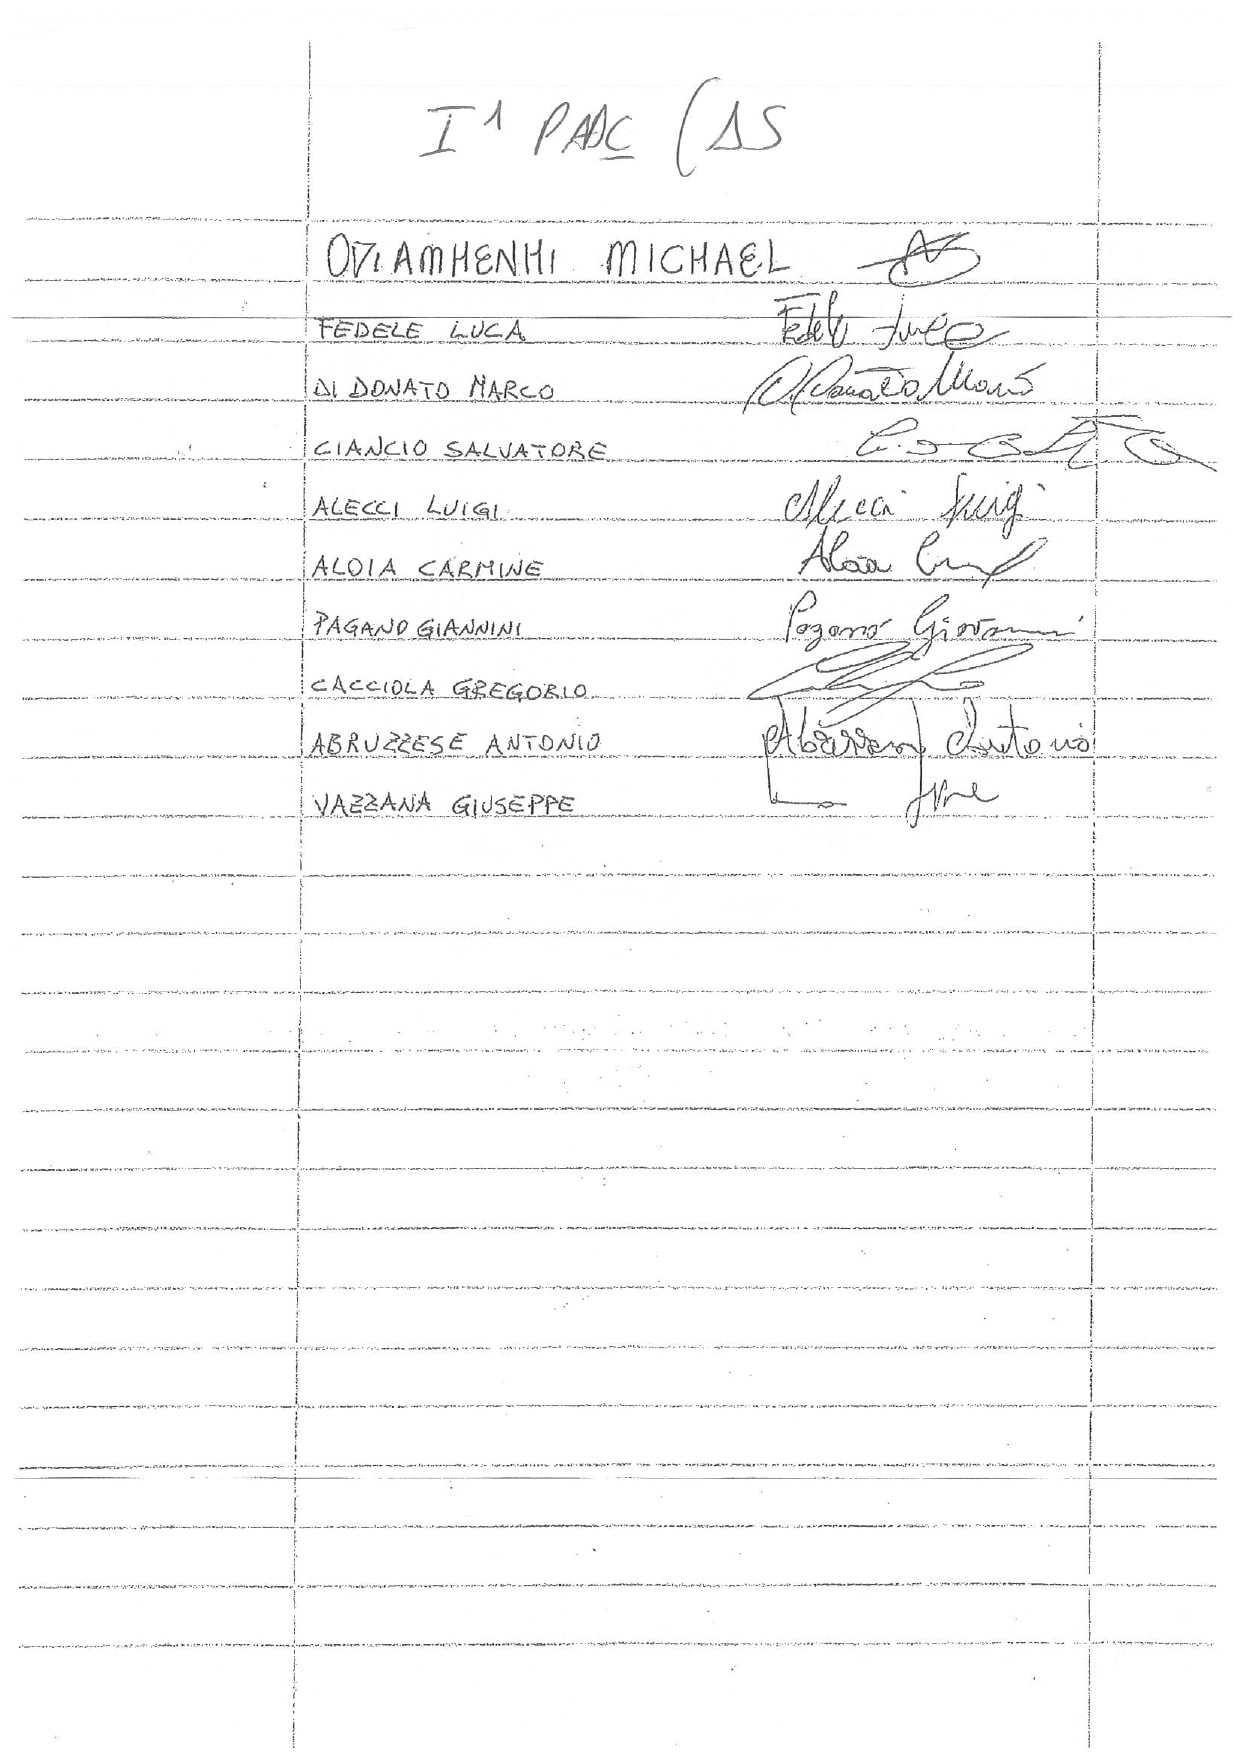 I^A PADC (AS
OVIAMHENHI MICHAEL
FEDELE LUCA Fedele Luca
DI DONATO MARCO Di Donato Marco
CIANCIO SALVATORE
ALECCI LUIGI Alecci Luigi
ALOIA CARMINE Aloia
PAGANO GIANNINI Pagano Giovanni
CACCIOLA GREGORIO
ABRUZZESE ANTONIO Abruzzese Antonio
VAZZANA GIUSEPPE